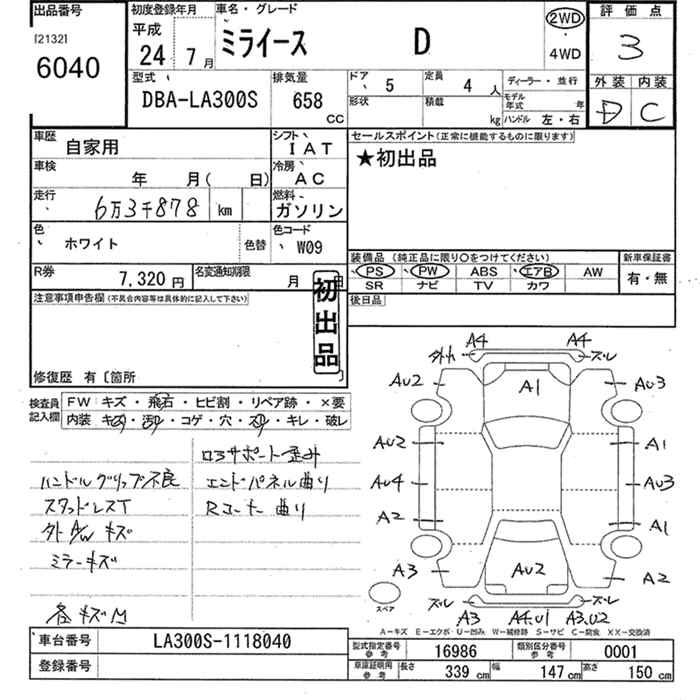 出品番号
[2132]
6040
初度登録年月
平成
24年7月
車名・グレード
ミライース D
2WD
・
4WD
評価点
3
型式
DBA-LA300S
排気量
658
CC
ドア
5
定員
4人
形状
積載
kg
ディーラー・並行
モデル年式 年
ハンドル 左・右
外装 内装
D C
車歴
自家用
シフト
IAT
車検
年 月( 日)
冷房
AC
走行
6万3千878 km
燃料
ガソリン
色
ホワイト
色替
色コード
W09
R券
7,320円
名変通知期限
月 日
セールスポイント(正常に機能するものに限ります)
★初出品
装備品(純正品に限り○をつけてください)
PS PW ABS エアB AW
SR ナビ TV カワ
新車保証書
有・無
後日品
注意事項申告欄(不具合内容等は具体的に記入して下さい)
初出品
修復歴 有〔箇所
検査員記入欄
FW キズ・飛石・ヒビ割・リペア跡・×要
内装 キズ・汚れ・コゲ・穴・スレ・キレ・破レ
ハンドルグリップ不良
スタッドレスT
外A/Wキズ
ミラーキズ
各キズM
ロアサポート歪み
エンドパネル曲り
Rコーナー曲り
A4 A4
外れ ズレ
AU2 A1 AU3
AU2 A1
AU4 AU3
A2 A1
A3 AU2 A2
スペア
ズレ ズレ
A3 A4.U1 A3.U2
A―キズ E―エクボ U―凹み W―補修跡 S―サビ C―腐食 XX―交換済
車台番号
LA300S-1118040
登録番号
型式指定番号
参考
16986
類別区分番号
参考
0001
車庫証明用
参考
長さ 339 cm
幅 147 cm
高さ 150 cm